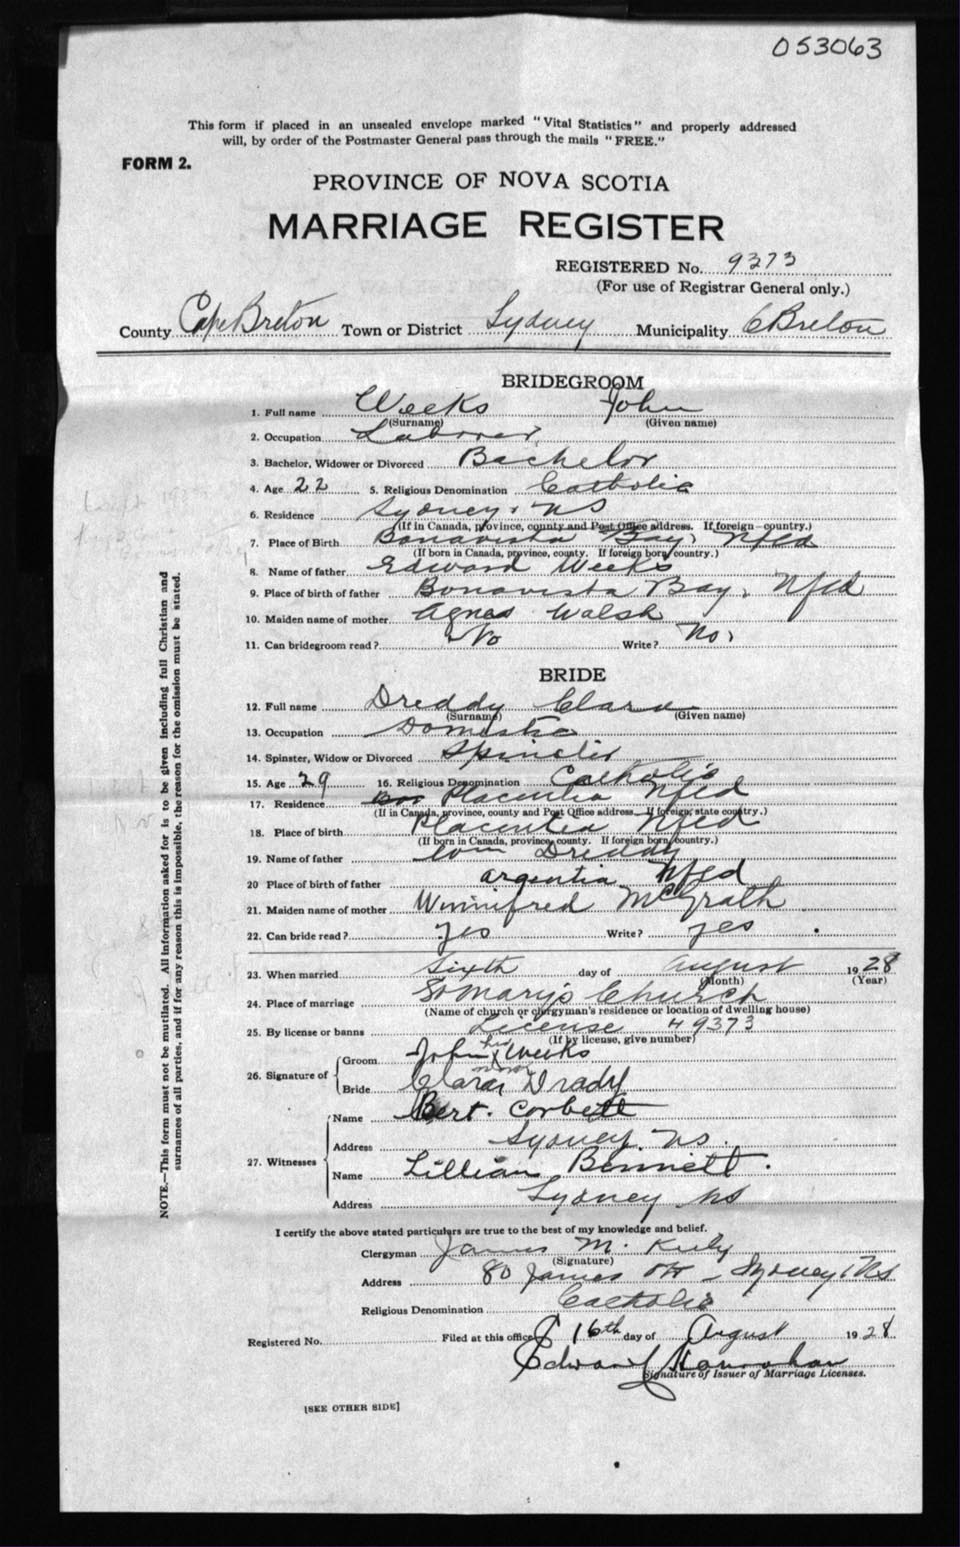 053063
This form if placed in an unsealed envelope marked "Vital Statistics" and properly addressed
will, by order of the Postmaster General pass through the mails "FREE."
FORM 2.
PROVINCE OF NOVA SCOTIA
MARRIAGE REGISTER
REGISTERED No. 9373
(For use of Registrar General only.)
County Cape Breton Town or District Sydney Municipality C Breton
BRIDEGROOM
1. Full name Weeks John
(Surname) (Given name)
2. Occupation Laborer
3. Bachelor, Widower or Divorced Bachelor
4. Age 22 5. Religious Denomination Catholic
6. Residence Sydney, NS
(If in Canada, province, county and Post Office address. If foreign—country.)
7. Place of Birth Bonavista Bay, Nfld
(If born in Canada, province, county. If foreign born, country.)
8. Name of father Edward Weeks
9. Place of birth of father Bonavista Bay, Nfld
10. Maiden name of mother Agnes Walsh
11. Can bridegroom read? No Write? No,
BRIDE
12. Full name Dreddy Clara
(Surname) (Given name)
13. Occupation Domestic
14. Spinster, Widow or Divorced Spinster
15. Age 29 16. Religious Denomination Catholic
17. Residence Placentia Nfld
(If in Canada, province, county and Post Office address. If foreign, state country.)
18. Place of birth Placentia Nfld
(If born in Canada, province, county. If foreign born, country.)
19. Name of father Tom Dreddy
20 Place of birth of father Argentia Nfld
21. Maiden name of mother Winnifred McGrath
22. Can bride read? yes Write? yes
23. When married Sixth day of August 1928
(Month) (Year)
24. Place of marriage St Mary's Church
(Name of church or clergyman's residence or location of dwelling house)
25. By license or banns License # 9373
(If by license, give number)
26. Signature of Groom John his Weeks
mark
Bride Clara Drady
27. Witnesses Name Bert. Corbett
Address Sydney NS.
Name Lillian Bennett.
Address Sydney NS
I certify the above stated particulars are true to the best of my knowledge and belief.
Clergyman James M. Kiely
(Signature)
Address 80 James St – Sydney, NS
Religious Denomination Catholic
Registered No. Filed at this office 16th day of August 1928
Edward Hanrahan
Signature of Issuer of Marriage Licenses.
[SEE OTHER SIDE]
NOTE.—This form must not be mutilated. All information asked for is to be given including full Christian and
surnames of all parties, and if for any reason this is impossible, the reason for the omission must be stated.